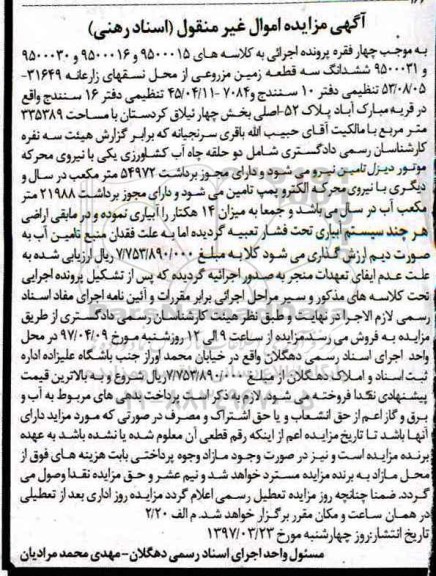 آگهی مزایده اموال غیر منقول (اسناد رهنی)
به موجب چهار فقره پرونده اجرائی به کلاسه های ۹۵۰۰۰۱۵ و ۹۵۰۰۰۱۶ و ۹۵۰۰۰۳۰
و ۹۵۰۰۰۳۱ ششدانگ سه قطعه زمین مزروعی از محل نسقهای زارعانه ۳۱۶۴۹-
۵۳/۰۸/۰۵ تنظیمی دفتر ۱۰ سنندج و ۷۰۸۴-۴۵/۰۴/۱۱ تنظیمی دفتر ۱۶ سنندج واقع
در قریه مبارک آباد پلاک ۵۲-اصلی بخش چهار نیلاق کردستان با مساحت ۳۳۵۳۸۹
متر مربع با مالکیت آقای حبیب الله باقری سرنجیانه که برابر گزارش هیئت سه نفره
کارشناسان رسمی دادگستری شامل دو حلقه چاه آب کشاورزی یکی با نیروی محرکه
موتور دیزل تامین نیرو می شود و دارای مجوز برداشت ۵۴۹۷۲ متر مکعب در سال و
دیگری با نیروی محرکه الکترو پمپ تامین می شود و دارای مجوز برداشت ۲۱۹۸۸ متر
مکعب آب در سال می باشد و جمعا به میزان ۱۴ هکتار را آبیاری نموده و در مابقی اراضی
هر چند سیستم آبیاری تحت فشار تعبیه گردیده اما به علت فقدان منبع تامین آب به
صورت دیم ارزش گذاری می شود کلا به مبلغ ۷/۷۵۳/۸۹۰/۰۰۰ ریال ارزیابی شده به
علت عدم ایفای تعهدات منجر به صدور اجرائیه گردیده که پس از تشکیل پرونده اجرایی
تحت کلاسه های مذکور و سیر مراحل اجرائی برابر مقررات و آئین نامه اجرای مفاد اسناد
رسمی لازم الاجرا در نهایت و طبق نظر هیئت کارشناسان رسمی دادگستری از طریق
مزایده به فروش می رسد مزایده از ساعت ۹ الی ۱۲ روز شنبه مورخ ۹۷/۰۴/۰۹ در محل
واحد اجرای اسناد رسمی دهگلان واقع در خیابان محمد اوراز جنب باشگاه علیزاده اداره
ثبت اسناد و املاک دهگلان از مبلغ ۷/۷۵۳/۸۹۰/۰۰۰ ریال شروع و به بالاترین قیمت
پیشنهادی نقدا فروخته می شود لازم به ذکر است پرداخت بدهی های مربوط به آب و
برق و گاز اعم از حق انشعاب و یا حق اشتراک و مصرف در صورتی که مورد مزاید دارای
آنها باشد تا تاریخ مزایده اعم از اینکه رقم قطعی آن معلوم شده یا نشده باشد به عهده
برنده مزایده است و نیز در صورت وجود مازاد وجوه پرداختی بابت هزینه های فوق از
محل مازاد به برنده مزایده مسترد خواهد شد و نیم عشر و حق مزایده نقدا وصول می
گردد. ضمنا چنانچه روز مزایده تعطیل رسمی اعلام گردد مزایده روز اداری بعد از تعطیلی
در همان ساعت و مکان مقرر برگزار خواهد شد. م الف ۲/۲۰
تاریخ انتشار: روز چهارشنبه مورخ ۱۳۹۷/۰۳/۲۳
مسئول واحد اجرای اسناد رسمی دهگلان-مهدی محمد مرادیان